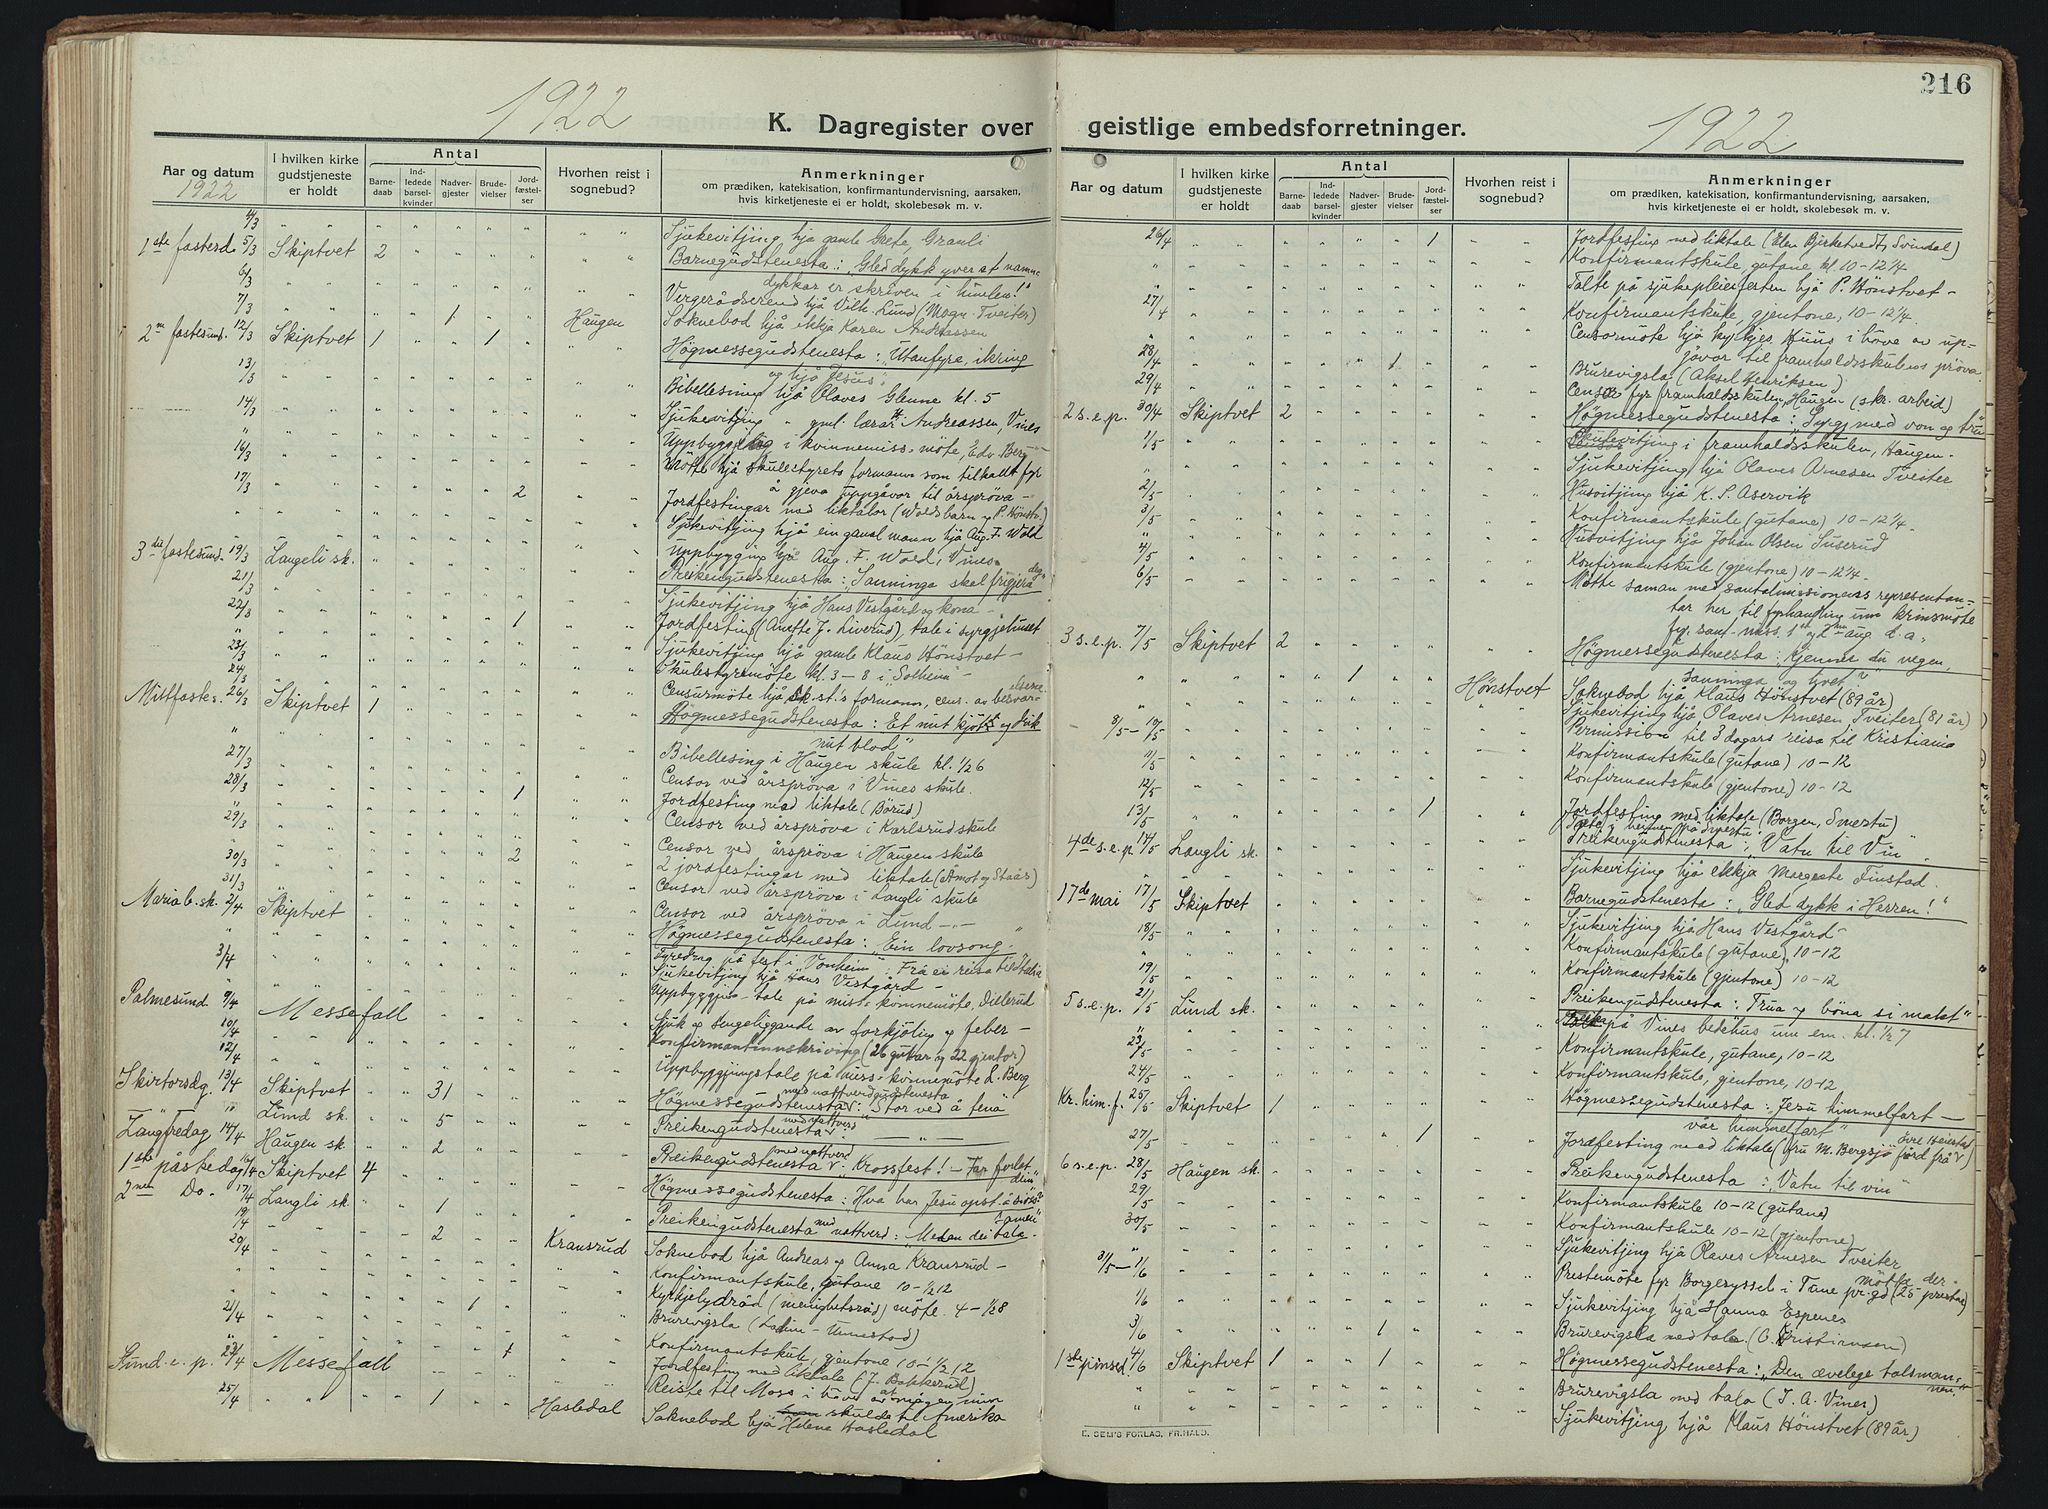 1922
K. Dagregister over
Aar og datum
1922
I hvilken kirke gudstjeneste er holdt
Antal
Barnedaab
Indledede barselkvinder
Nadvergjester
Brudevielser
Jordfæstelser
Hvorhen reist i sognebud?
Anmerkninger
om prædiken, katekisation, konfirmantundervisning, aarsaken, hvis kirketjeneste ei er holdt, skolebesøk m. v.
4/3 Sjukevitjing hjå gamle Grauli
1ste fastesd. 5/3 Skiptvet 2 Barnegudstenesta: „Gled dykk yver at namne
dykkar er skriven i himlen!"
6/3 Vergerådserend hjå Vilh. Lund (Mogn. Tveiter)
7/3 1 Haugen Soknebod hjå ekkja Karen Andreassen
2n fastesund. 12/3 Skiptvet 1 1 Høgmessegudstenesta: Utanfyre, ikring
og hjå Jesus"
13/3 Bibellesing hjå Olaves Glenne kl. 5
14/3 Sjukevitjing " gml. lærar Andreassen, Vines
" Uppbygging i kvinnemiss. møte, Edv. Berg
16/3 Møtte hjå skulestyrets formann som tilkallt fyr
å gjeva uppgåvor til årsprøva -
17/3 2 Jordfestingar med liktalor (Woldsbarn og P. Hønstv.)
" Sjukevitjing hjå ein gamal mann hjå Aug. F. Wold
" Uppbygging hjå Aug. F. Wold, Vines
3die fastesund. 19/3 Langeli sk. Preikengudstenesta: „Sanninga skal frigjera deg"
21/3 Sjukevitjing hjå Hans Vestgård og kona -
22/3 1 Jordfesting (Anette J. Liverud), tale i syrgjehuset
" Sjukevitjing hjå gamle Klaus Hønstvet -
23/3 Skulestyremøte kl. 3 - 8 i Solheim -
24/3 Censurmøte hjå sk. st.'s formann, cens. av
Midtfaste s. 26/3 Skiptvet 1 Høgmessegudstenesta: Et mit kjøt og drik
mit blod"
" Bibellesing i Haugen skule kl. 1/2 6
27/3 Censor ved årsprøva i Vines skule.
28/3 1 Jordfesting med liktale (Børud)
" Censor ved årsprøva i Karlsrud skule
29/3 Censor ved årsprøva i Haugen skule
" 2 2 jordfestingar med liktale (Åmot og Staår)
30/3 Censor ved årsprøva i Langli skule
31/3 Censor ved årsprøva i Lund -"-
Maria b. sk. 2/4 Skiptvet Høgmessegudstenesta: „Ein lovsong"
" Fyredrag på fest i „Vonheim": Frå ei reisa til Italia
3/4 Sjukevitjing hjå Hans Vestgård -
" Uppbyggjings-tale på miss. kvinnemøte, Dillerud
Palmesund 9/4 Messefall Sjuk og sengeliggande av forkjøling og feber -
10/4 Konfirmantinnskriving (26 gutar og 22 gjentor)
12/4 Uppbyggjingstale på miss. kvinnemøte L. Berg
Skirtorsdg. 13/4 Skiptvet 31 Høgmessegudstenesta med nattverdgudstenesta: Stor ved å tena
" Lund sk. 5 Preikengudstenesta med nattverd -"-
Langfredag 14/4 Haugen sk. 2 Preikengudstenesta med nattverd: „Krossfest! - Far forlat deim"
1ste påskedag 16/4 Skiptvet 4 Høgmessegudstenesta: Hva har Jesu opst.
2nen Do. 17/4 Langli sk. 1 Preikengudstenesta med nattverd: „Medan dei tala saman"
19/4 2 Kransrud Soknebod hjå Andreas og Anna Kransrud -
20/4 Konfirmantskule, gutane 10 - 1/2 12
" Kyrkjelydråd (menighetsråd) møte. 4 - 1/2 8
21/4 1 Brurevigsla
" Konfirmantskule, gjentone 10 - 1/2 12
" 1 Jordfesting med liktale (J. Bakkerud)
2 sund. e. p. 23/4 Messefall Reiste til Moss
skulde til Amerika
25/4 1 Hasledal Soknebod hjå Helene Hasledal
216
1922
geistlige embedsforretninger.
Aar og datum
I hvilken kirke gudstjeneste er holdt
Antal
Barnedaab
Indledede barselkvinder
Nadvergjester
Brudevielser
Jordfæstelser
Hvorhen reist i sognebud?
Anmerkninger
om prædiken, katekisation, konfirmantundervisning, aarsaken, hvis kirketjeneste ei er holdt, skolebesøk m. v.
26/4 1 Jordfesting med liktale (Elen Birketvedt, Svindal)
" Konfirmantskule, gutane kl. 10 - 12 1/4
" Talte på sjukepleiefesten hjå P. Hønstvet -
27/4 Konfirmantskule, gjentone, 10 - 12 1/4.
" Censormøte hjå kyrkjes. Huus i høve av up-
gåvor til framhaldsskulens prøva.
28/4 1 Brurevigsla (Aksel Henriksen)
29/4 Censor fyr framhaldsskulen, Haugen (skr. arbeid)
2 s. e. p. 30/4 Skiptvet 2 Høgmessegudstenesta: Syrgj med von og tru
1/5 Skulevitjing i framhaldsskulen, Haugen -
" Sjukevitjing hjå Olaves Arnesen Tveiter
2/5 Husvitjing hjå K. S. Aservik
3/5 Konfirmantskule (gutane) 10 - 12 1/4 -
" Husvitjing hjå Johan Olsen Suserud
4/5 Konfirmantskule (gjentone) 10 - 12 1/4 -
6/5 Møtte saman med santalmissionens representan-
tar her til fyrhandling um krinsmøte
fyr sant. miss. 1ste og 2nen aug. d. a.
3 s. e. p. 7/5 Skiptvet 2 Høgmessegudstenesta: Kjenner du vegen,
sanninga og livet?"
" 1 Hønstvet Soknebod hjå Klaus Hønstvet (89 år)
" Sjukevitjing hjå Olaves Arnesen Tveiter (81 år)
8/5 - 10/5 Permission til 3 dagars reisa til Kristiania
11/5 Konfirmantskule (gutane) 10 - 12
12/5 Konfirmantskule (gjentone) 10 - 12
13/5 1 Jordfesting med liktale (Borgen, Smertu)
4de s. e. p. 14/5 Langli sk. Preikengudstenesta: „Vatn til Vin"
" Sjukevitjing hjå ekkja Margrete Finstad.
17de mai 17/5 Skiptvet Barnegudstenesta: „Gled dykk i Herren!"
18/5 Sjukevitjing hjå Hans Vestgård -
" Konfirmantskule (gutane) 10 - 12
19/5 Konfirmantskule (gjentone) 10 - 12
5 s. e. p. 21/5 Lund sk. Preikengudstenesta: „Trua og bøna si makt"
" på Vines bedehus um em. kl. 1/2 7
23/5 Konfirmantskule, gutane, 10 - 12
24/5 Konfirmantskule, gjentone, 10 - 12
Kr. him. f. 25/5 Skiptvet 1 Høgmessegudstenesta: „Jesu himmelfart -
vår himmelfart"
27/5 1 Jordfesting med liktale (fru M. Bergsjø førd frå øvre Heistad)
6 s. e. p. 28/5 Haugen sk. Preikengudstenesta: „Vatn til vin"
29/5 Konfirmantskule 10 - 12 (gutane)
30/5 Konfirmantskule 10 - 12 (gjentone)
" Sjukevitjing hjå Olaves Arnesen Tveiter
31/5 - 1/6 Prestemøte fyr Borgesyssel i Tune pr. gd. møtte der (25 prestar)
1/6 Sjukevitjing hjå Hanna Espenes
3/6 1 Brurevigsla med tale. (O. Kristiansen)
1ste pinsed. 4/6 Skiptvet 1 1 Høgmessegudstenesta: „Den ævelege talsman-
nen."
" Brurevigsla med tala (T. A. Vines)
" Sjukevitjing hjå Klaus Hønstvet (89 år)
E. SEM'S FORLAG, FR.HALD.